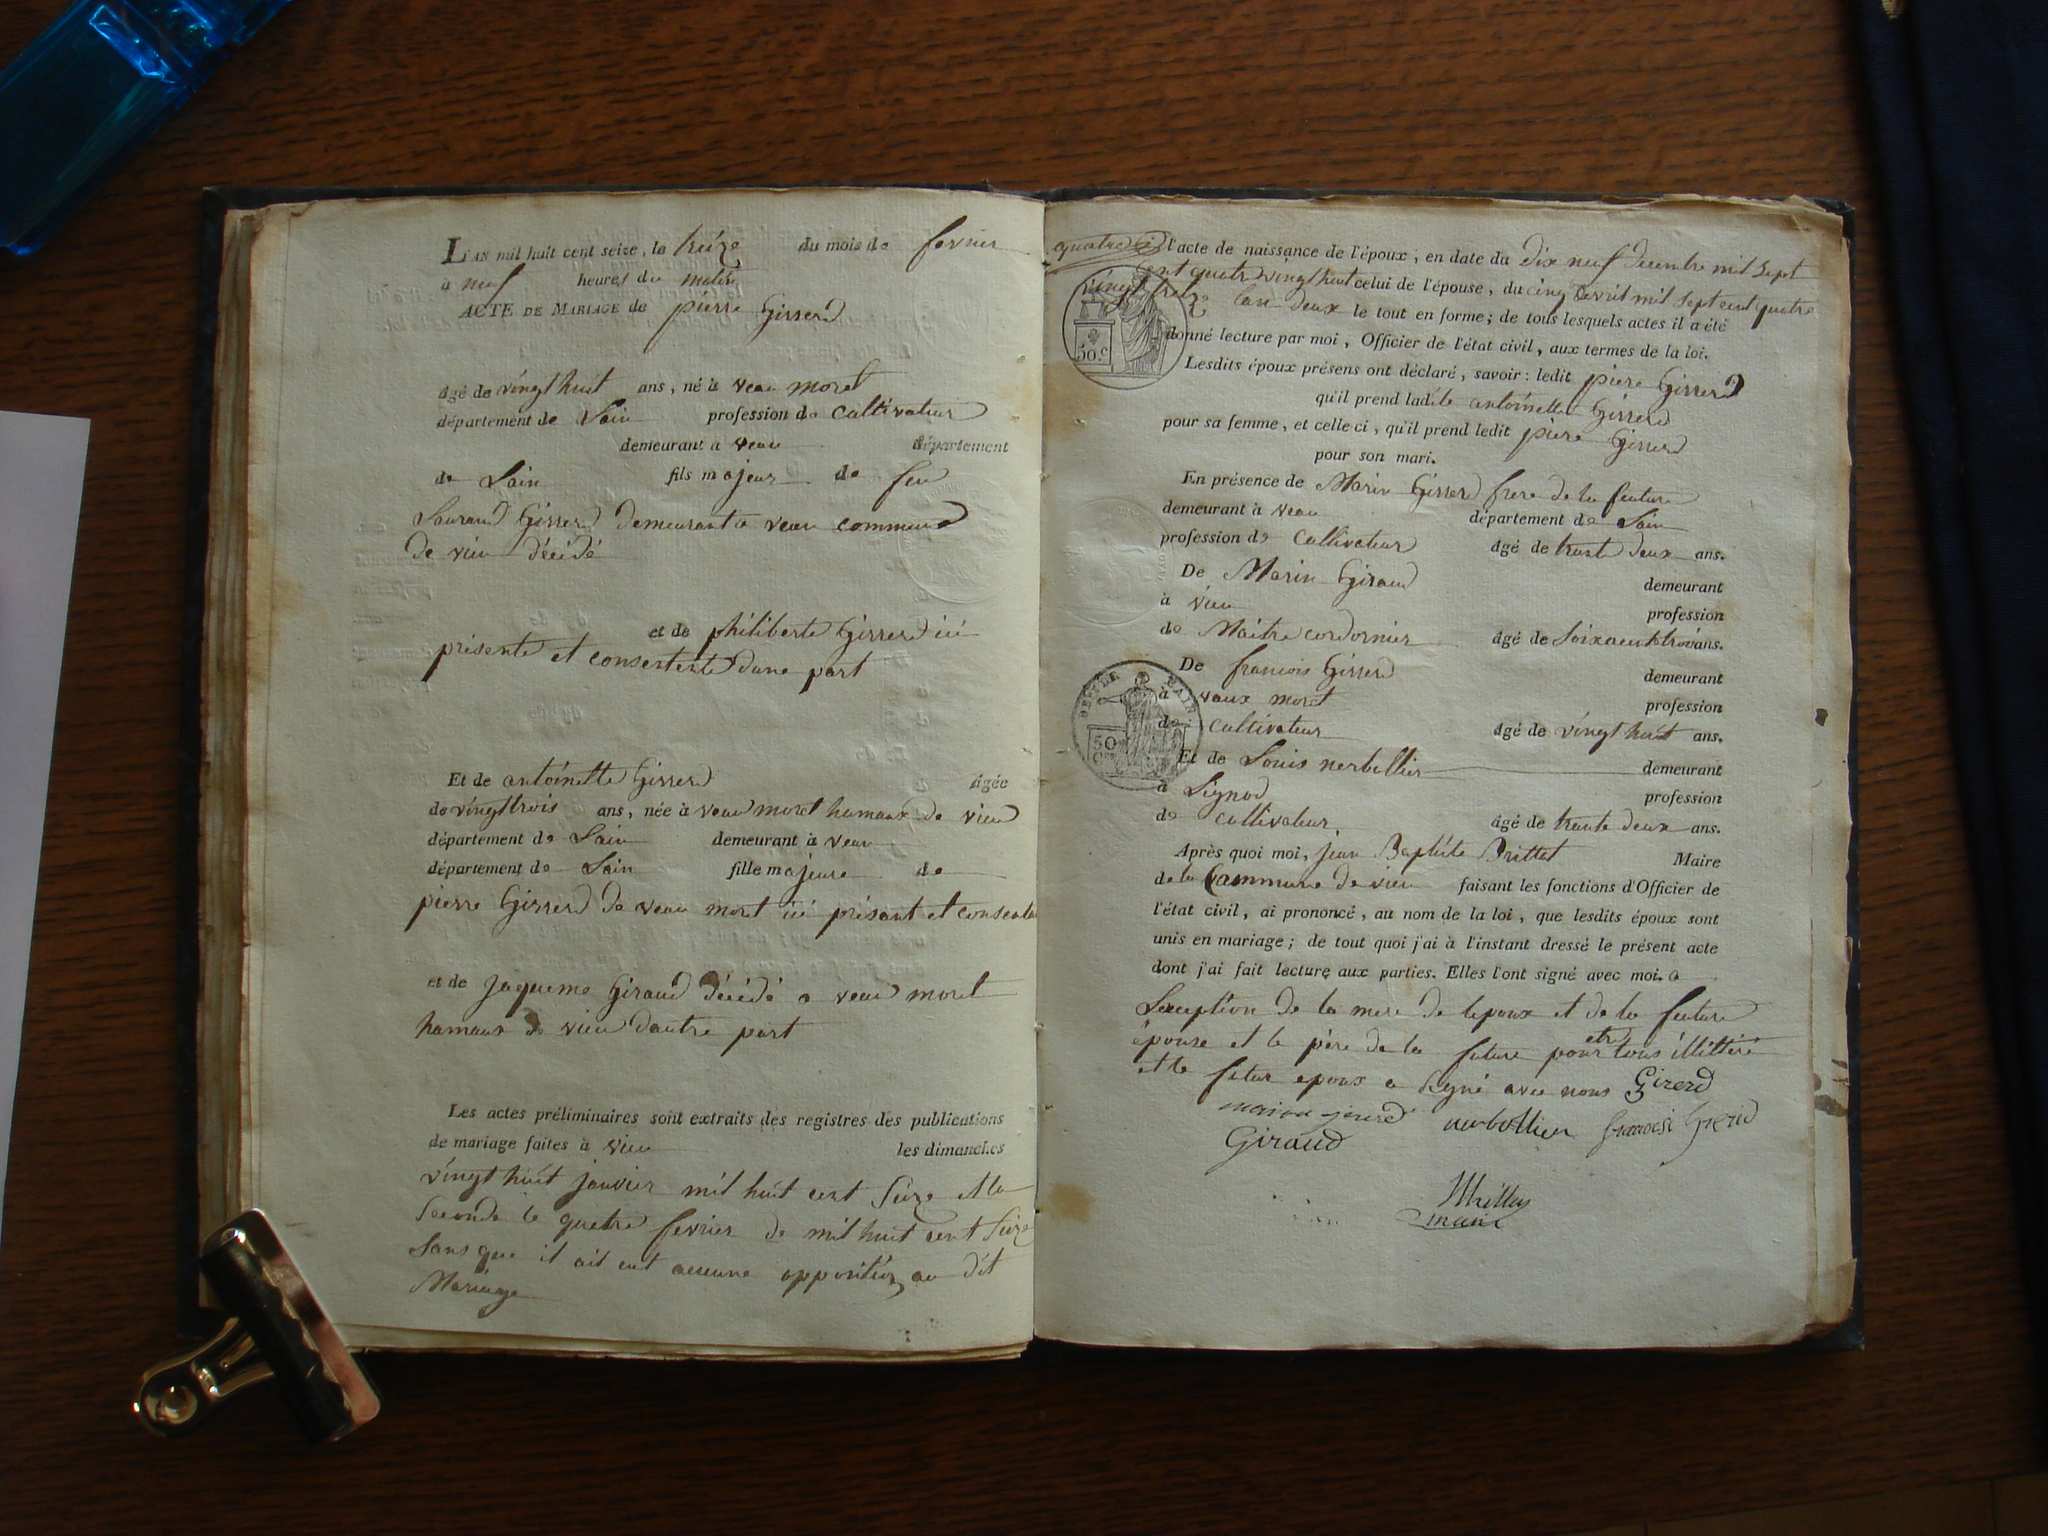 L'AN mil huit cent seize, le treize du mois de fevrier
à neuf heures du matin
ACTE DE MARIAGE de pierre Girrerd
âgé de vingt huit ans, né à veau moret
département de Lain profession de cultivateur
demeurant à veau département
de Lain fils majeur de feu
Laurand Girrerd demeurant a veau commune
de vieu décédé
et de philiberte Girrerd ici
présente et consentente dune part
Et de antoinette Girrerd âgée
de vingt trois ans, née à veau moret hamaux de vieu
département de Lain demeurant à veau
département de Lain fille majeure de
pierre Girrerd de veau moret ici présant et consentant
et de Jaqueme Giraud décédé a veau moret
hamaux de vieu dautre part
Les actes préliminaires sont extraits des registres des publications
de mariage faites à vieu les dimanches
vingt huit janvier mil huit cent seize et la
seconde le quatre fevrier de mil huit cent seize
sans que il ait eut aucune opposition au dit
Mariage
quatre l'acte de naissance de l'époux, en date du dix neuf decembre mil sept
cent quatre vingt huit celui de l'épouse, du cinq avril mil sept cent quatre
vingt treize lan deux le tout en forme; de tous lesquels actes il a été
donné lecture par moi, Officier de l'état civil, aux termes de la loi.
50.c
Lesdits époux présens ont déclaré, savoir: ledit piere Girrerd
qu'il prend ladite antoinette Girrerd
pour sa femme, et celle ci, qu'il prend ledit piere Girrerd
pour son mari.
En présence de Marin Girrerd frere de la future
demeurant à veau département de Lain
profession de Cultivateur âgé de trante deux ans.
De Marin Giraud demeurant
à vieu profession
de Maitre cordornier âgé de soixante trois ans.
De francois Girrerd demeurant
à vaux moret profession
de cultivateur âgé de vingt huit ans.
50
Et de Louis nerbollier demeurant
à Lignod profession
de cultivateur âgé de trante deux ans.
Après quoi moi, jean Baptiste Brillat Maire
de la Commune de vieu faisant les fonctions d'Officier de
l'état civil, ai prononcé, au nom de la loi, que lesdits époux sont
unis en mariage; de tout quoi j'ai à l'instant dressé le présent acte
dont j'ai fait lecture aux parties. Elles l'ont signé avec moi. a
Lexception de la mere de lepoux et de la future
épouse et le père de la future pour etre tous illitteré
et le futur epoux a signé avec nous Girerd
marin girerd nerbollier francois Girerd
Giraud
Brillat
maire